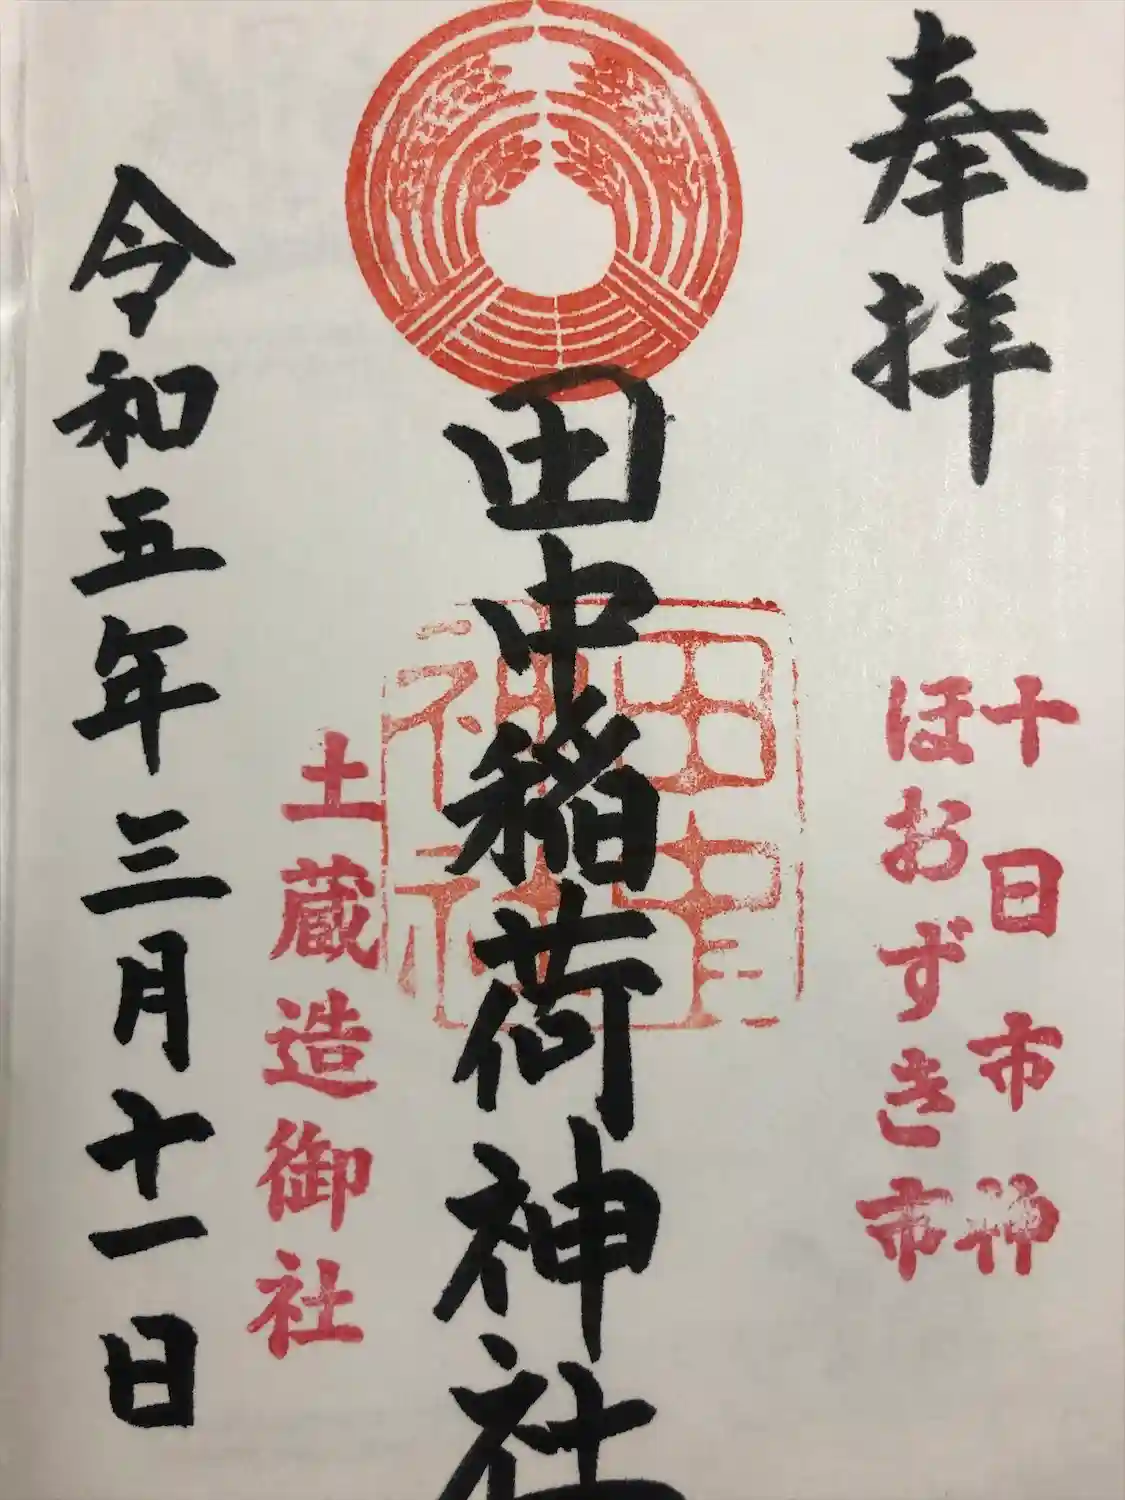 奉拝
十日市神
ほおずき市
田中稲荷神社
土蔵造御社
令和五年三月十一日